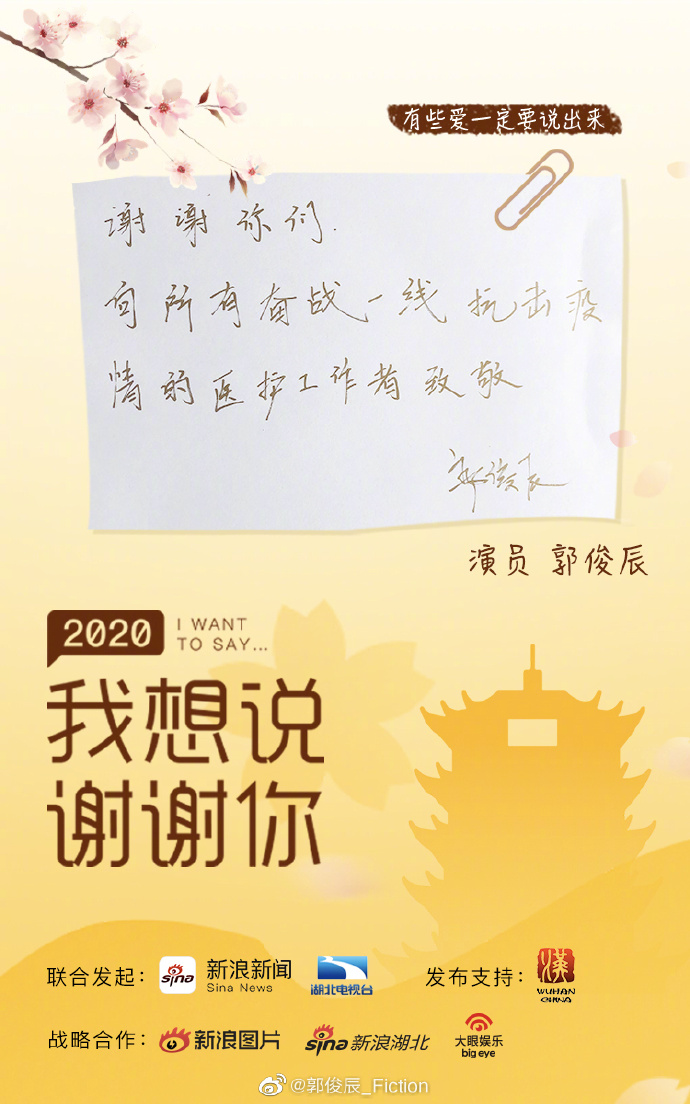 有些爱一定要说出来
谢谢你们.
向所有奋战一线抗击疫
情的医护工作者致敬
郭俊辰
演员 郭俊辰
2020
I WANT
TO SAY...
我想说
谢谢你
联合发起：
sina
新浪新闻
Sina News
湖北电视台
发布支持：
漢
WUHAN
CHINA
战略合作：
新浪图片
sina新浪湖北
大眼娱乐
big eye
@郭俊辰_Fiction